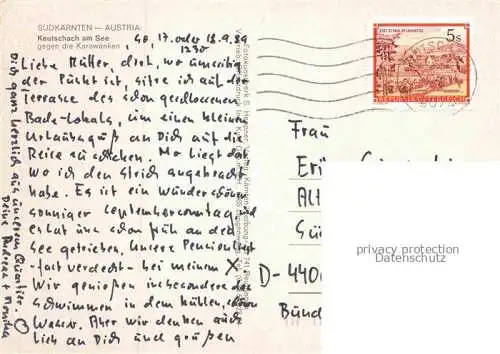 SÜDKÄRNTEN — AUSTRIA:
Keutschach am See
gegen die Karawanken
So, 17. oder 18.9.89
1230
Liebe Mütter, dort, wo
der Punkt ist, sitze ich auf der
Terrasse des schon geschlossenen
Bade-Lokals, um einen kleinen
Urlaubsgruß an Dich auf die
Reise zu schicken. Mo liegt dort
wo ich den Strich angebracht
habe. Es ist ein wunderschöner
sonniger Septembersonntag und
es hat uns schon früh an den
See getrieben. Unsere Pension liegt
-fast verdeckt- bei meinem X
Wir genießen insbesondere das
Schwimmen in dem kühlen, klaren
Wasser. Aber wir denken auch
lieb an Dich und grüßen
Dich ganz herzlich aus unserem Quartier.
Deine Andreas + Monika
5s
REPUBLIK ÖSTERREICH
Frau
Eri
Alt
Sü
D-440
Bünd
privacy protection
Datenschutz